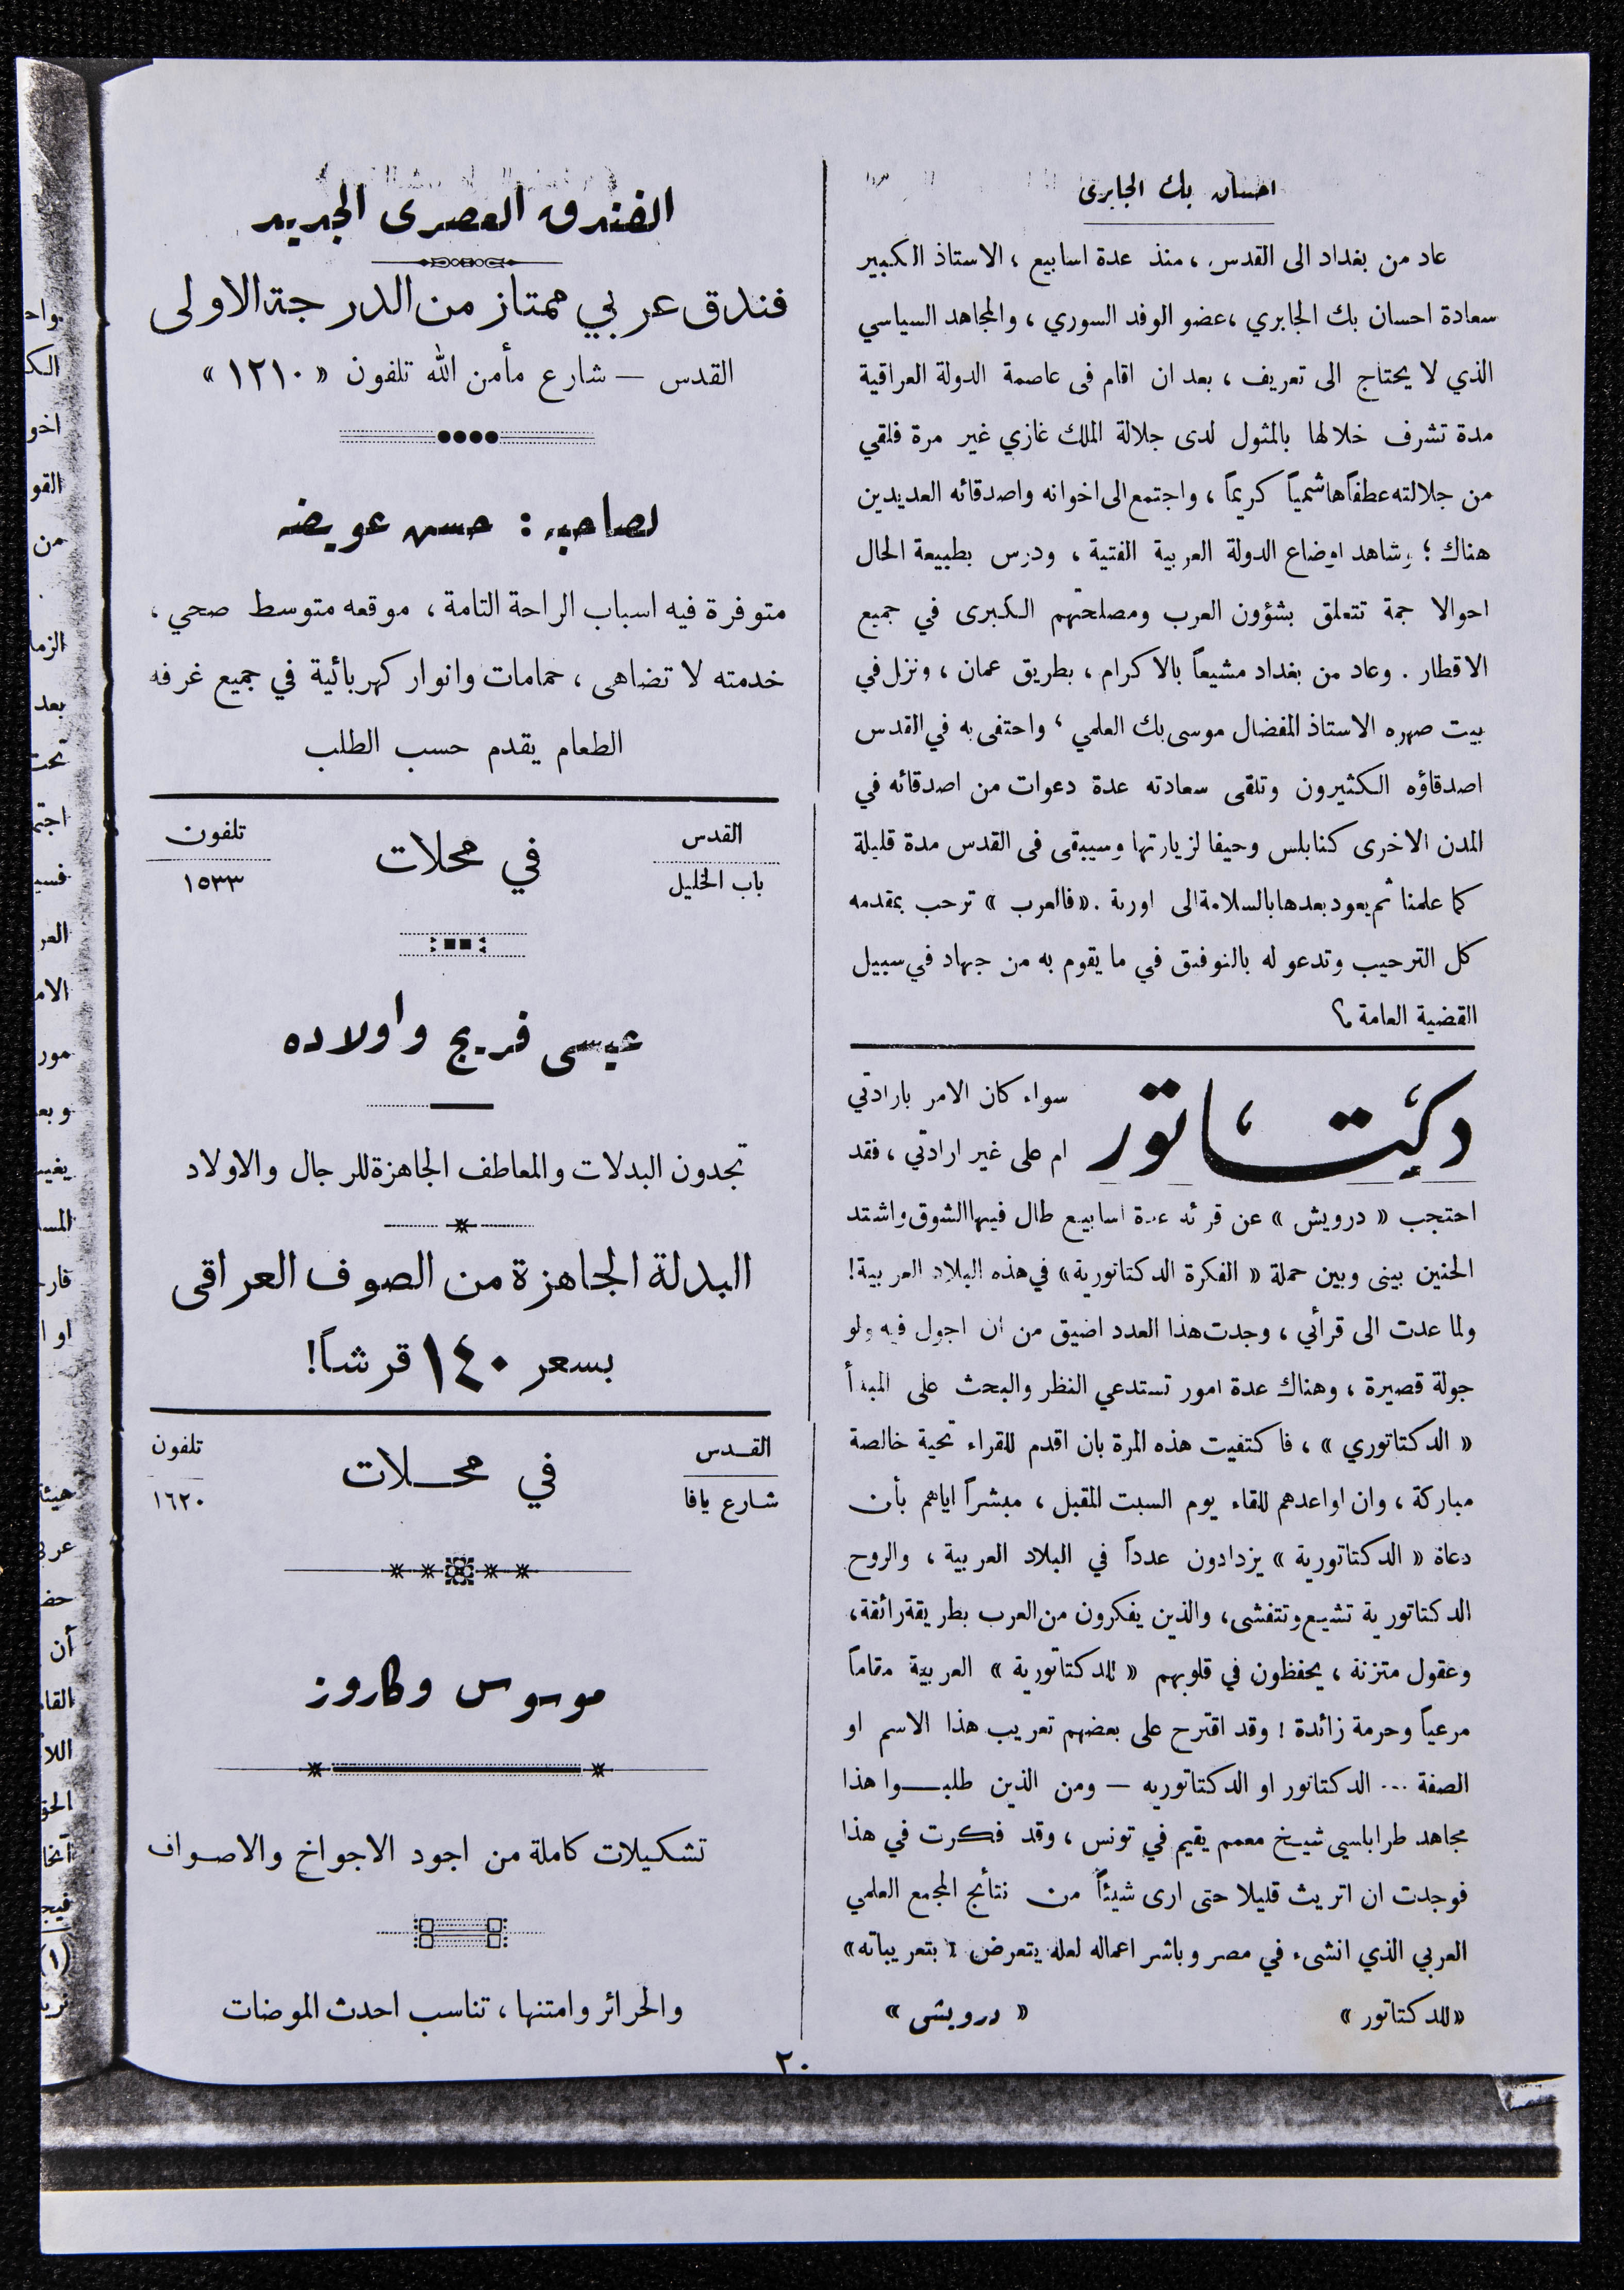 احسان بك الجابري
عاد من بغداد الى القدس ، منذ عدة اسابيع ، الاستاذ الكبير
سعادة احسان بك الجابري ، عضو الوفد السوري ، والمجاهد السياسي
الذي لا يحتاج الى تعريف ، بعد ان اقام في عاصمة الدولة العراقية
مدة تشرف خلالها بالمثول لدى جلالة الملك غازي غير مرة فلقي
من جلالته عطفاً هاشمياً كريماً ، واجتمع الى اخوانه واصدقائه العديدين
هناك ؛ وشاهد اوضاع الدولة العربية الفتية ، ودرس بطبيعة الحال
احوالا جمة تتعلق بشؤون العرب ومصلحتهم الكبرى في جميع
الاقطار . وعاد من بغداد مشيعاً بالاكرام ، بطريق عمان ، ونزل في
بيت صهره الاستاذ المفضال موسى بك العلمي ، واحتفى به في القدس
اصدقاؤه الكثيرون وتلقى سعادته عدة دعوات من اصدقائه في
المدن الاخرى كنابلس وحيفا لزيارتها وسيبقى في القدس مدة قليلة
كما علمنا ثم يعود بعدها بالسلامة الى اوربة . « فالعرب » ترحب بمقدمه
كل الترحيب وتدعو له بالتوفيق في ما يقوم به من جهاد في سبيل
القضية العامة
دكيتاتور
سواء كان الامر بارادتي
ام على غير ارادتي ، فقد
احتجب « درويش » عن قرائه عدة اسابيع طال فيها الشوق واشتد
الحنين بيني وبين حملة « الفكرة الدكتاتورية » في هذه البلاد العربية !
ولما عدت الى قرأني ، وجدت هذا العدد اضيق من ان اجول فيه ولو
جولة قصيرة ، وهناك عدة امور تستدعي النظر والبحث على المبدأ
« الدكتاتوري » ، فاكتفيت هذه المرة بان اقدم للقراء تحية خالصة
مباركة ، وان اواعدهم للقاء يوم السبت المقبل ، مبشراً اياهم بأن
دعاة « الدكتاتورية » يزدادون عدداً في البلاد العربية ، والروح
الدكتاتورية تشيع وتتفشى ، والذين يفكرون من العرب بطريقة رائقة ،
وعقول متزنة ، يحفظون في قلوبهم « للدكتاتورية » العربية مقاماً
مرعياً وحرمة زائدة ! وقد اقترح علي بعضهم تعريب هذا الاسم او
الصفة ... الدكتاتور او الدكتاتوريه — ومن الذين طلبـــوا هذا
مجاهد طرابلسي شيخ معمم يقيم في تونس ، وقد فكرت في هذا
فوجدت ان اتريث قليلا حتى ارى شيئاً من نتأئج المجمع العلمي
العربي الذي انشىء في مصر وباشر اعماله لعله يتعرض « بتعريباته »
« للدكتاتور » « درويش »
الفندق العصري الجديد
فندق عربي ممتاز من الدرجة الاولى
القدس — شارع مأمن الله تلفون « ١٢١٠ »
لصاحبه : حسن عويضه
متوفرة فيه اسباب الراحة التامة ، موقعه متوسط صحي ،
خدمته لا تضاهى ، حمامات وانوار كهربائية في جميع غرفه
الطعام يقدم حسب الطلب
القدس
باب الخليل
في محلات
تلفون
١٥٣٣
عيسى فريج واولاده
تجدون البدلات والمعاطف الجاهزة للرجال والاولاد
البدلة الجاهزة من الصوف العراقي
بسعر ١٤٠ قرشاً !
القـدس
شارع يافا
في محـــلات
تلفون
١٦٢٠
موسوس وكاروز
تشكيلات كاملة من اجود الاجواخ والاصـواف
والحرائر وامتنها ، تناسب احدث الموضات
٢٠